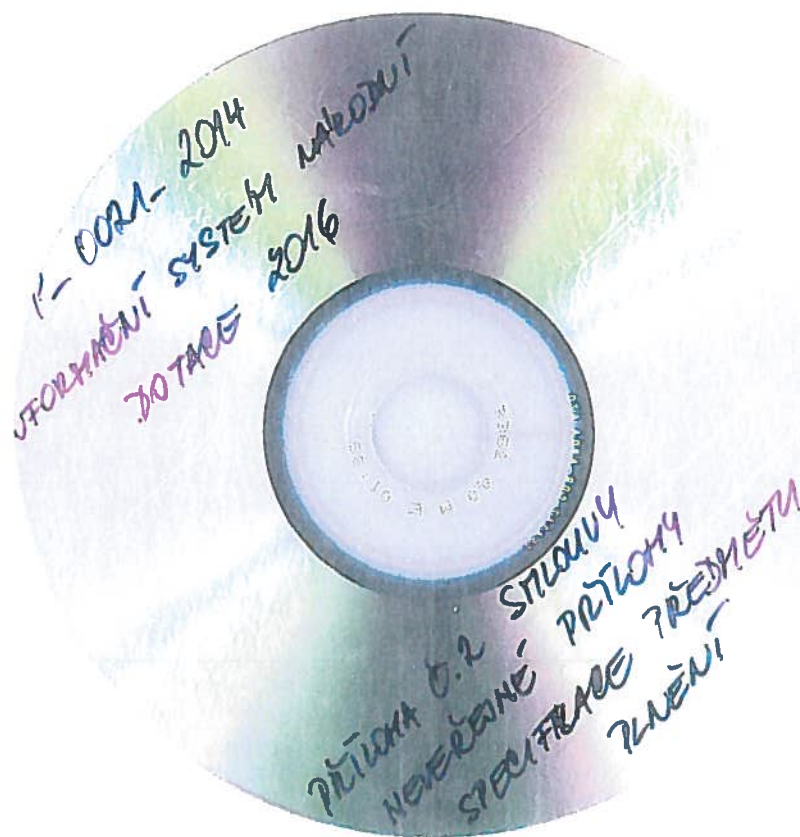 1- 0021- 2014
INFORMAČNÍ SYSTÉM NÁRODNÍ
DOTACE 2016
PŘÍLOHA Č.2 SMLOUVY
NEVEŘEJNÉ PŘÍLOHY
SPECIFIKACE PŘEDMĚTU
PLNĚNÍ